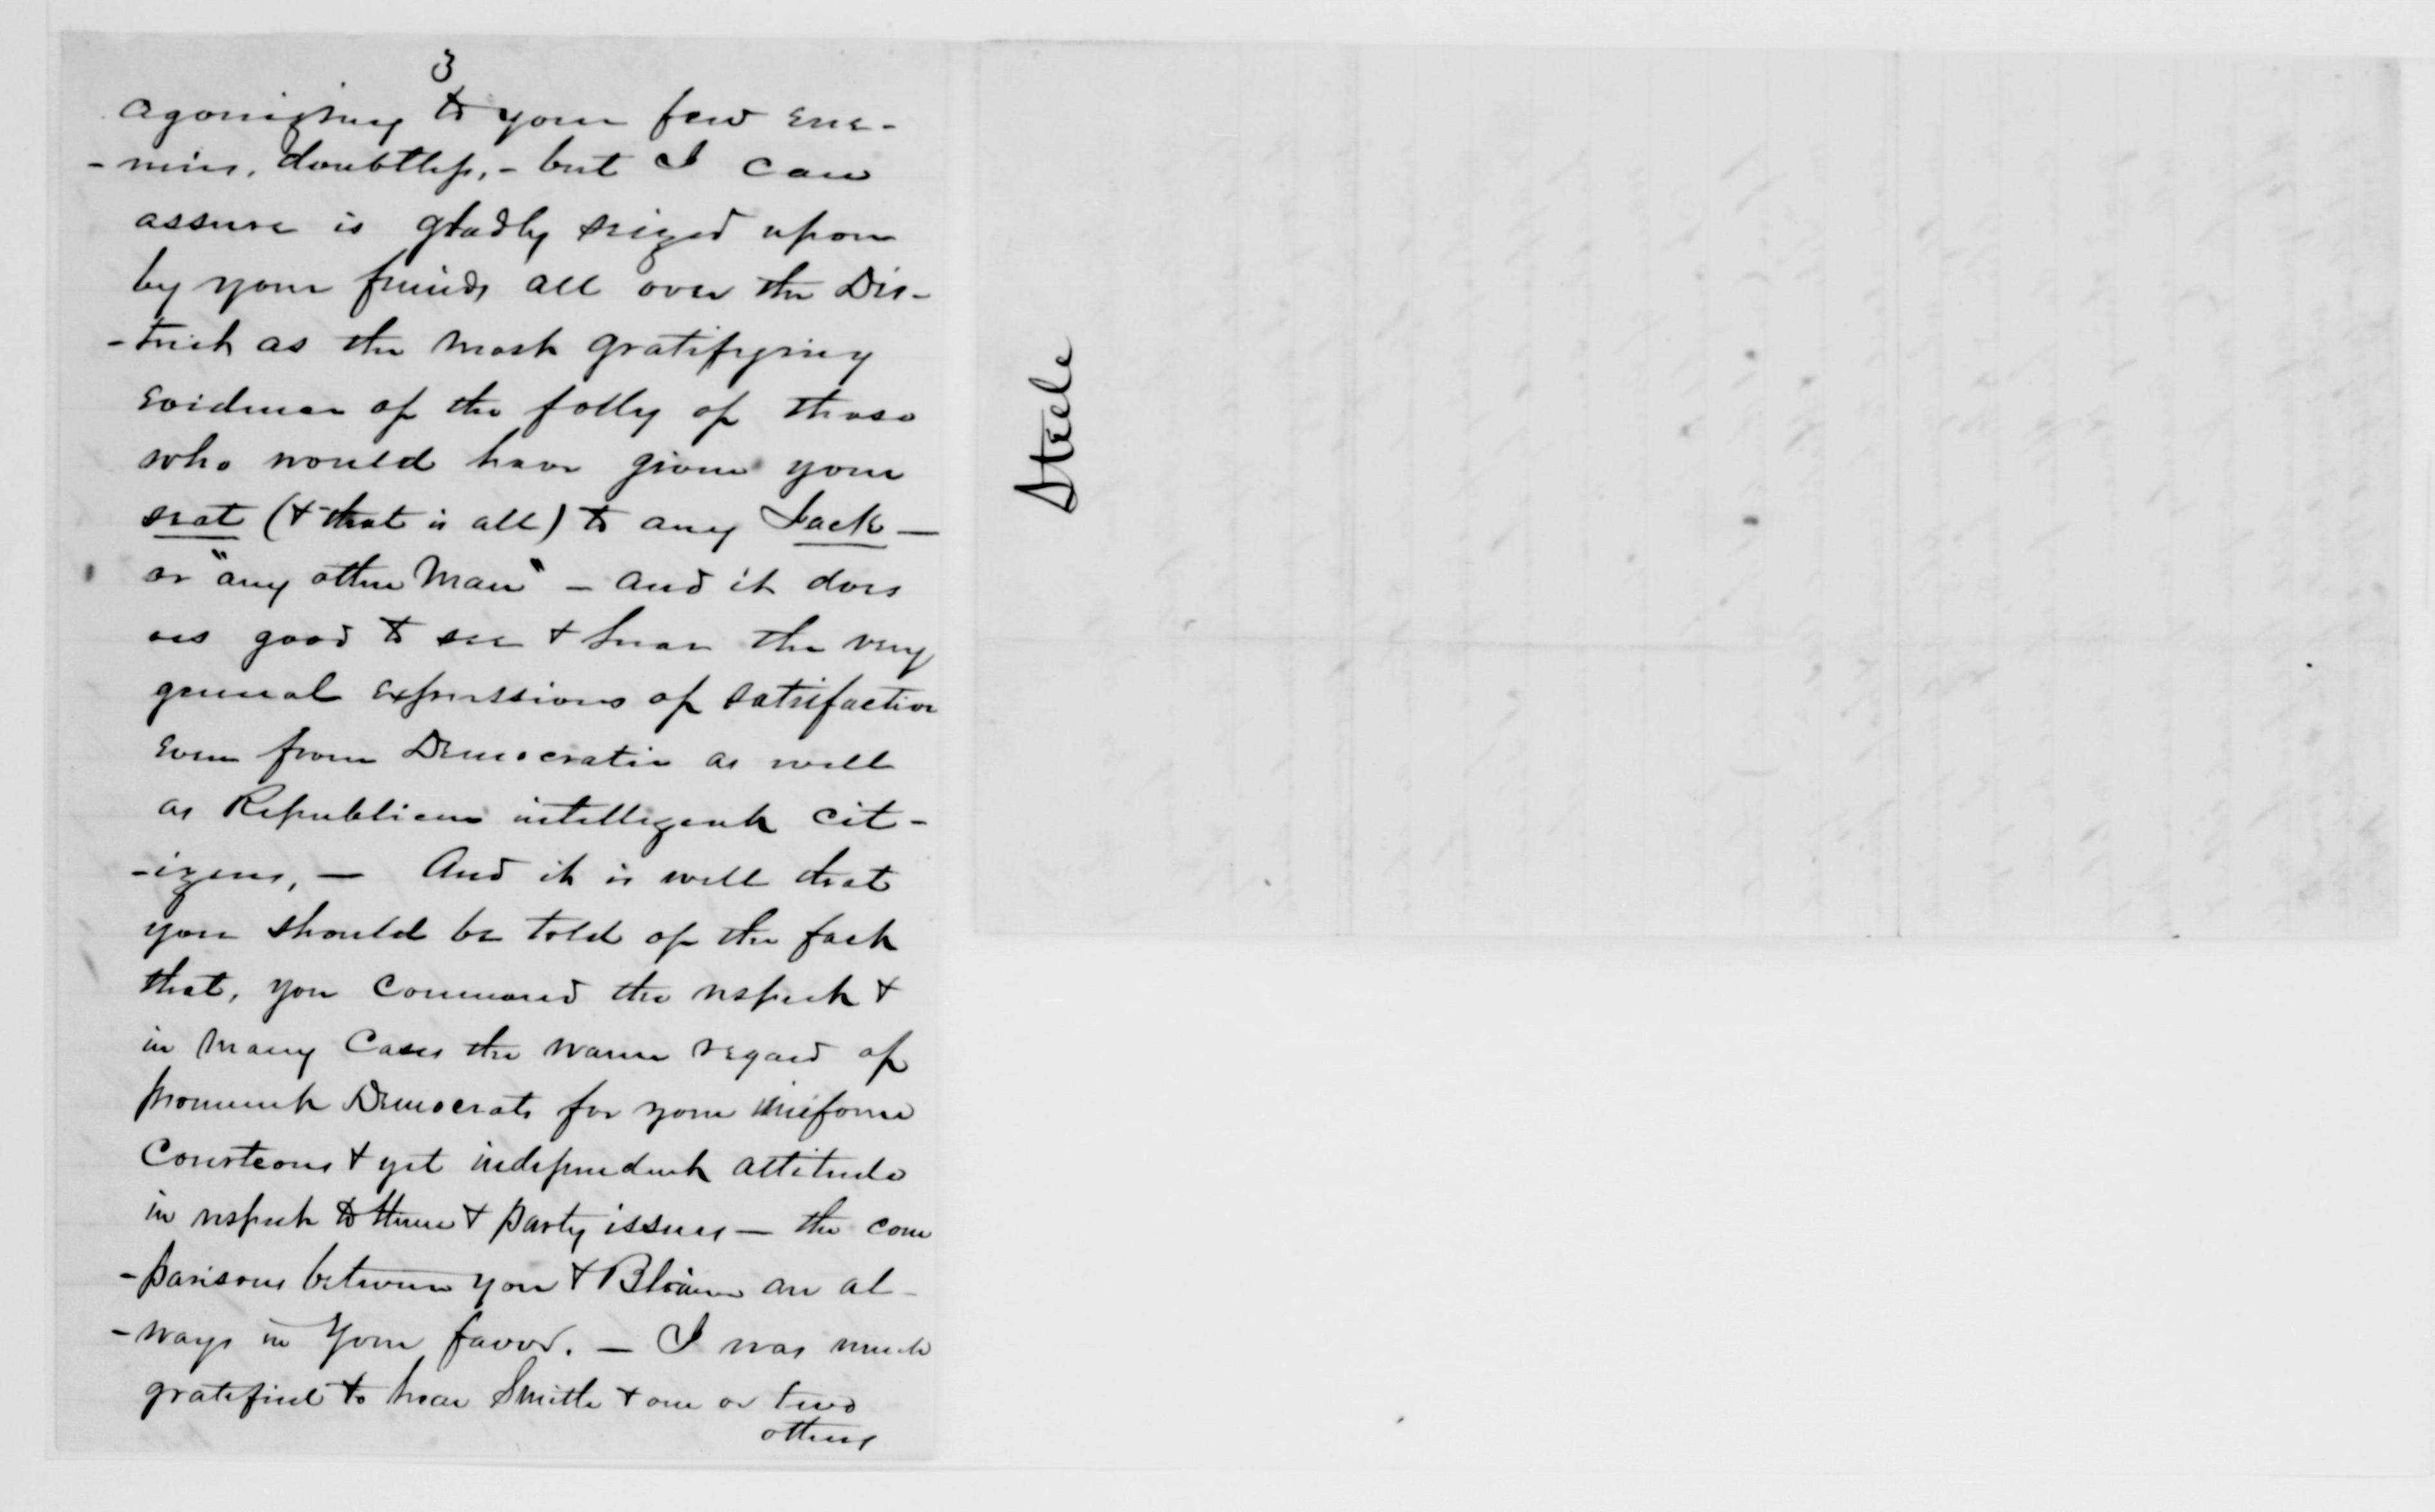 3
agonizing to your few ene-
-mies, doubtless, - but I can
assure is gladly seized upon
by your friends all over the Dis-
-trict as the most gratifying
evidence of the folly of those
who would have given your
seat (& that is all) to any Jack —
or "any other man" - and it does
us good to see & hear the very
general expressions of satisfaction
even from Democratic as well
as Republican intelligent cit-
-izens, — And it is well that
you should be told of the fact
that, you command the respect &
in many cases the warm regard of
prominent Democrats for your uniform
courteous & yet independent attitude
in respect to them & party issues — the com
-parisons between you & Blaine are al-
-ways in your favor. — I was much
gratified to hear Smith & one or two
others
Steele